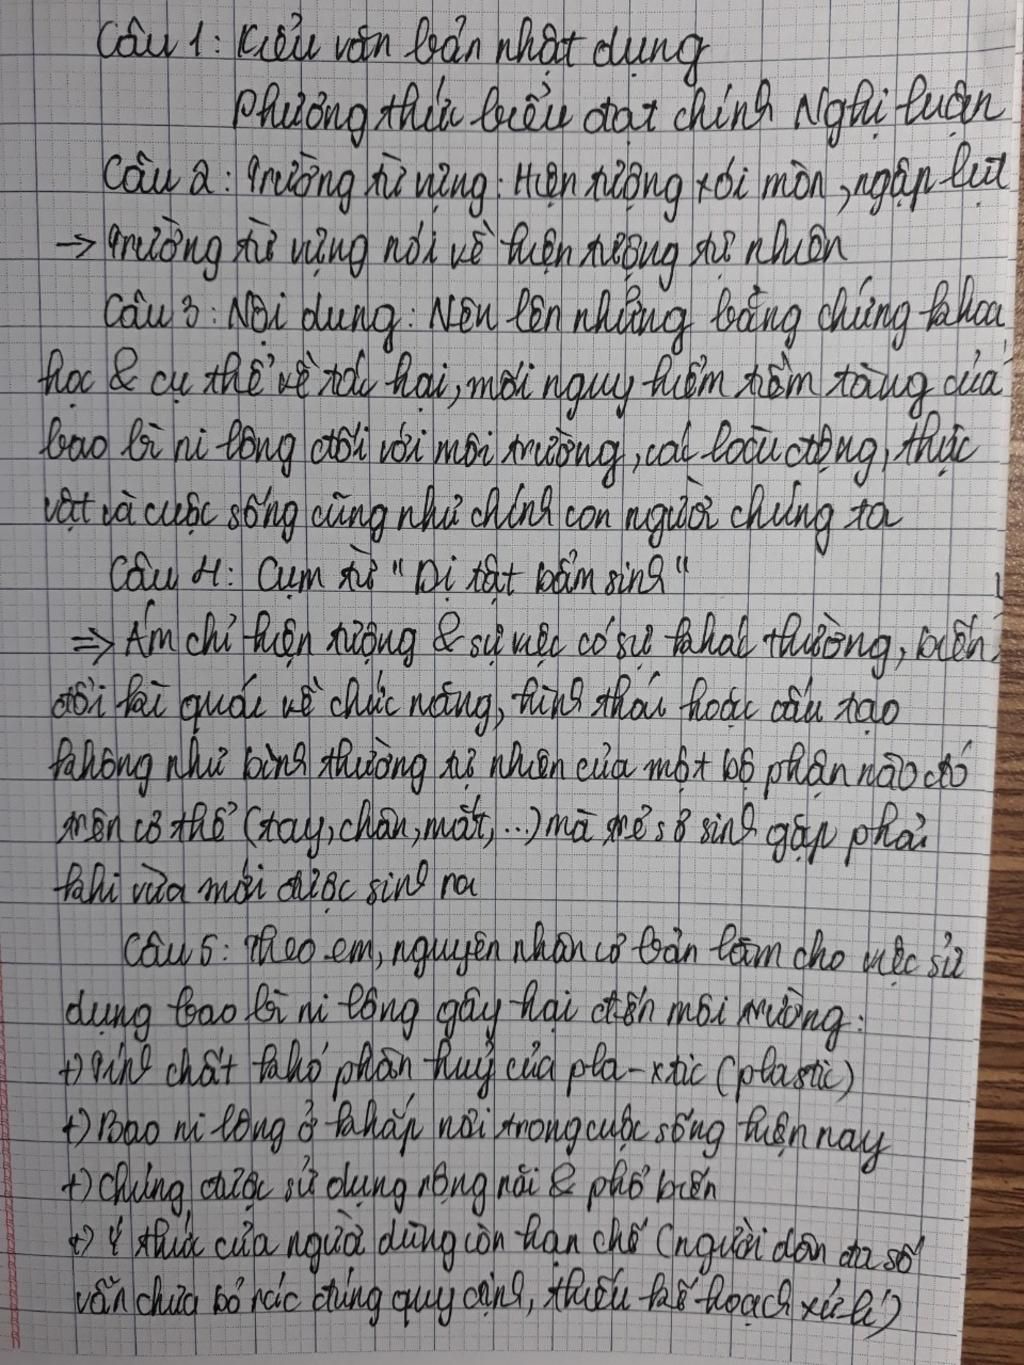 Câu 1: Kiểu văn bản nhật dụng
Phương thức biểu đạt chính Nghị luận
Câu 2: Trường từ vựng: Hiện tượng xói mòn, ngập lụt
→ Trường từ vựng nói về hiện tượng tự nhiên
Câu 3: Nội dung: Nêu lên những bằng chứng khoa
học & cụ thể về tác hại, mối nguy hiểm tiềm tàng của
bao bì ni lông đối với môi trường, các loài động, thực
vật và cuộc sống cũng như chính con người chúng ta
Câu 4: Cụm từ "Dị tật bẩm sinh"
⇒ Ám chỉ hiện tượng & sự việc có sự khác thường, biến
đổi kì quái về chức năng, hình thái hoặc cấu tạo
không như bình thường tự nhiên của một bộ phận nào đó
trên cơ thể (tay, chân, mắt, ...) mà trẻ sơ sinh gặp phải
khi vừa mới được sinh ra
Câu 5: Theo em, nguyên nhân cơ bản làm cho việc sử
dụng bao bì ni lông gây hại đến môi trường:
+) Tính chất khó phân huỷ của pla-xtic (plastic)
+) Bao ni lông ở khắp nơi trong cuộc sống hiện nay
+) Chúng được sử dụng rộng rãi & phổ biến
+) Ý thức của người dùng còn hạn chế (người dân đa số
vẫn chưa bỏ rác đúng quy định, thiếu kế hoạch xử lí)